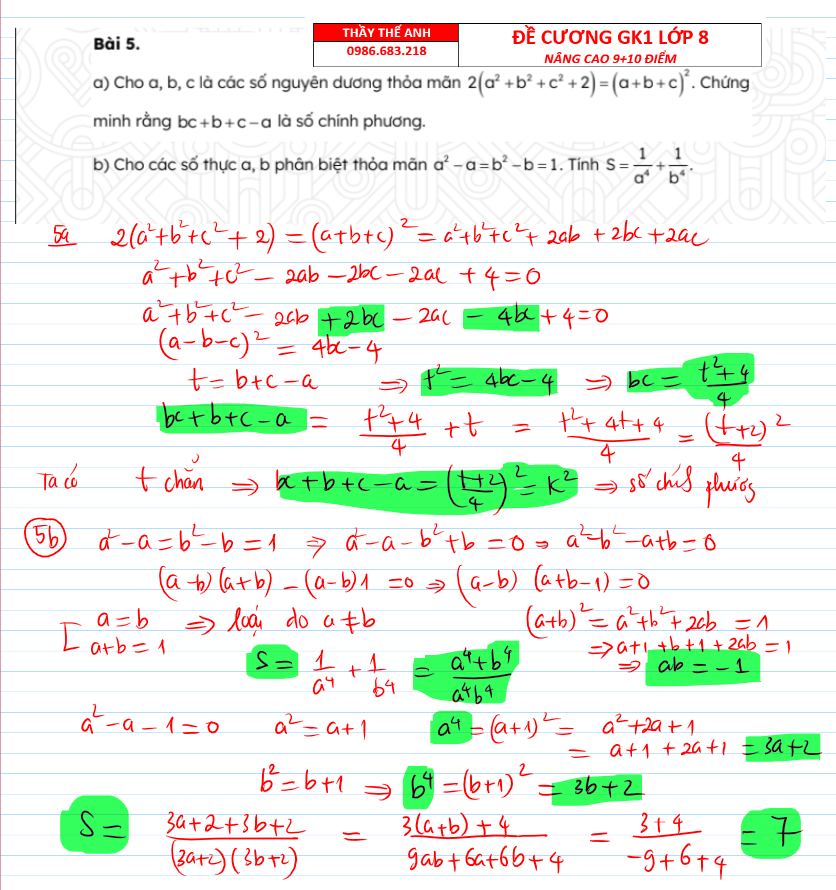 THẦY THẾ ANH
0986.683.218
ĐỀ CƯƠNG GK1 LỚP 8
NÂNG CAO 9+10 ĐIỂM
Bài 5.
a) Cho a, b, c là các số nguyên dương thỏa mãn 2(a²+b²+c²+2)=(a+b+c)². Chứng
minh rằng bc+b+c−a là số chính phương.
b) Cho các số thực a, b phân biệt thỏa mãn a²−a=b²−b=1. Tính S=1/a⁴+1/b⁴.
5a 2(a²+b²+c²+2)=(a+b+c)²=a²+b²+c²+2ab+2bc+2ac
a²+b²+c²−2ab−2bc−2ac+4=0
a²+b²+c²−2ab+2bc−2ac−4bc+4=0
(a−b−c)²=4bc−4
t=b+c−a ⇒ t²=4bc−4 ⇒ bc=(t²+4)/4
bc+b+c−a=(t²+4)/4+t=(t²+4t+4)/4=(t+2)²/4
Ta có t chẵn ⇒ bc+b+c−a=((t+2)/4)²=K² ⇒ số chính phương
5b a²−a=b²−b=1 ⇒ a²−a−b²+b=0 ⇒ a²−b²−a+b=0
(a−b)(a+b)−(a−b)1=0 ⇒ (a−b)(a+b−1)=0
[ a=b ⇒ loại do a≠b (a+b)²=a²+b²+2ab=1
a+b=1 ⇒ a+1+b+1+2ab=1
S=1/a⁴+1/b⁴=(a⁴+b⁴)/(a⁴b⁴) ⇒ ab=−1
a²−a−1=0 a²=a+1 a⁴=(a+1)²=a²+2a+1
=a+1+2a+1=3a+2
b²=b+1 ⇒ b⁴=(b+1)²=3b+2
S=(3a+2+3b+2)/((3a+2)(3b+2))=(3(a+b)+4)/(9ab+6a+6b+4)=(3+4)/(−9+6+4)=7